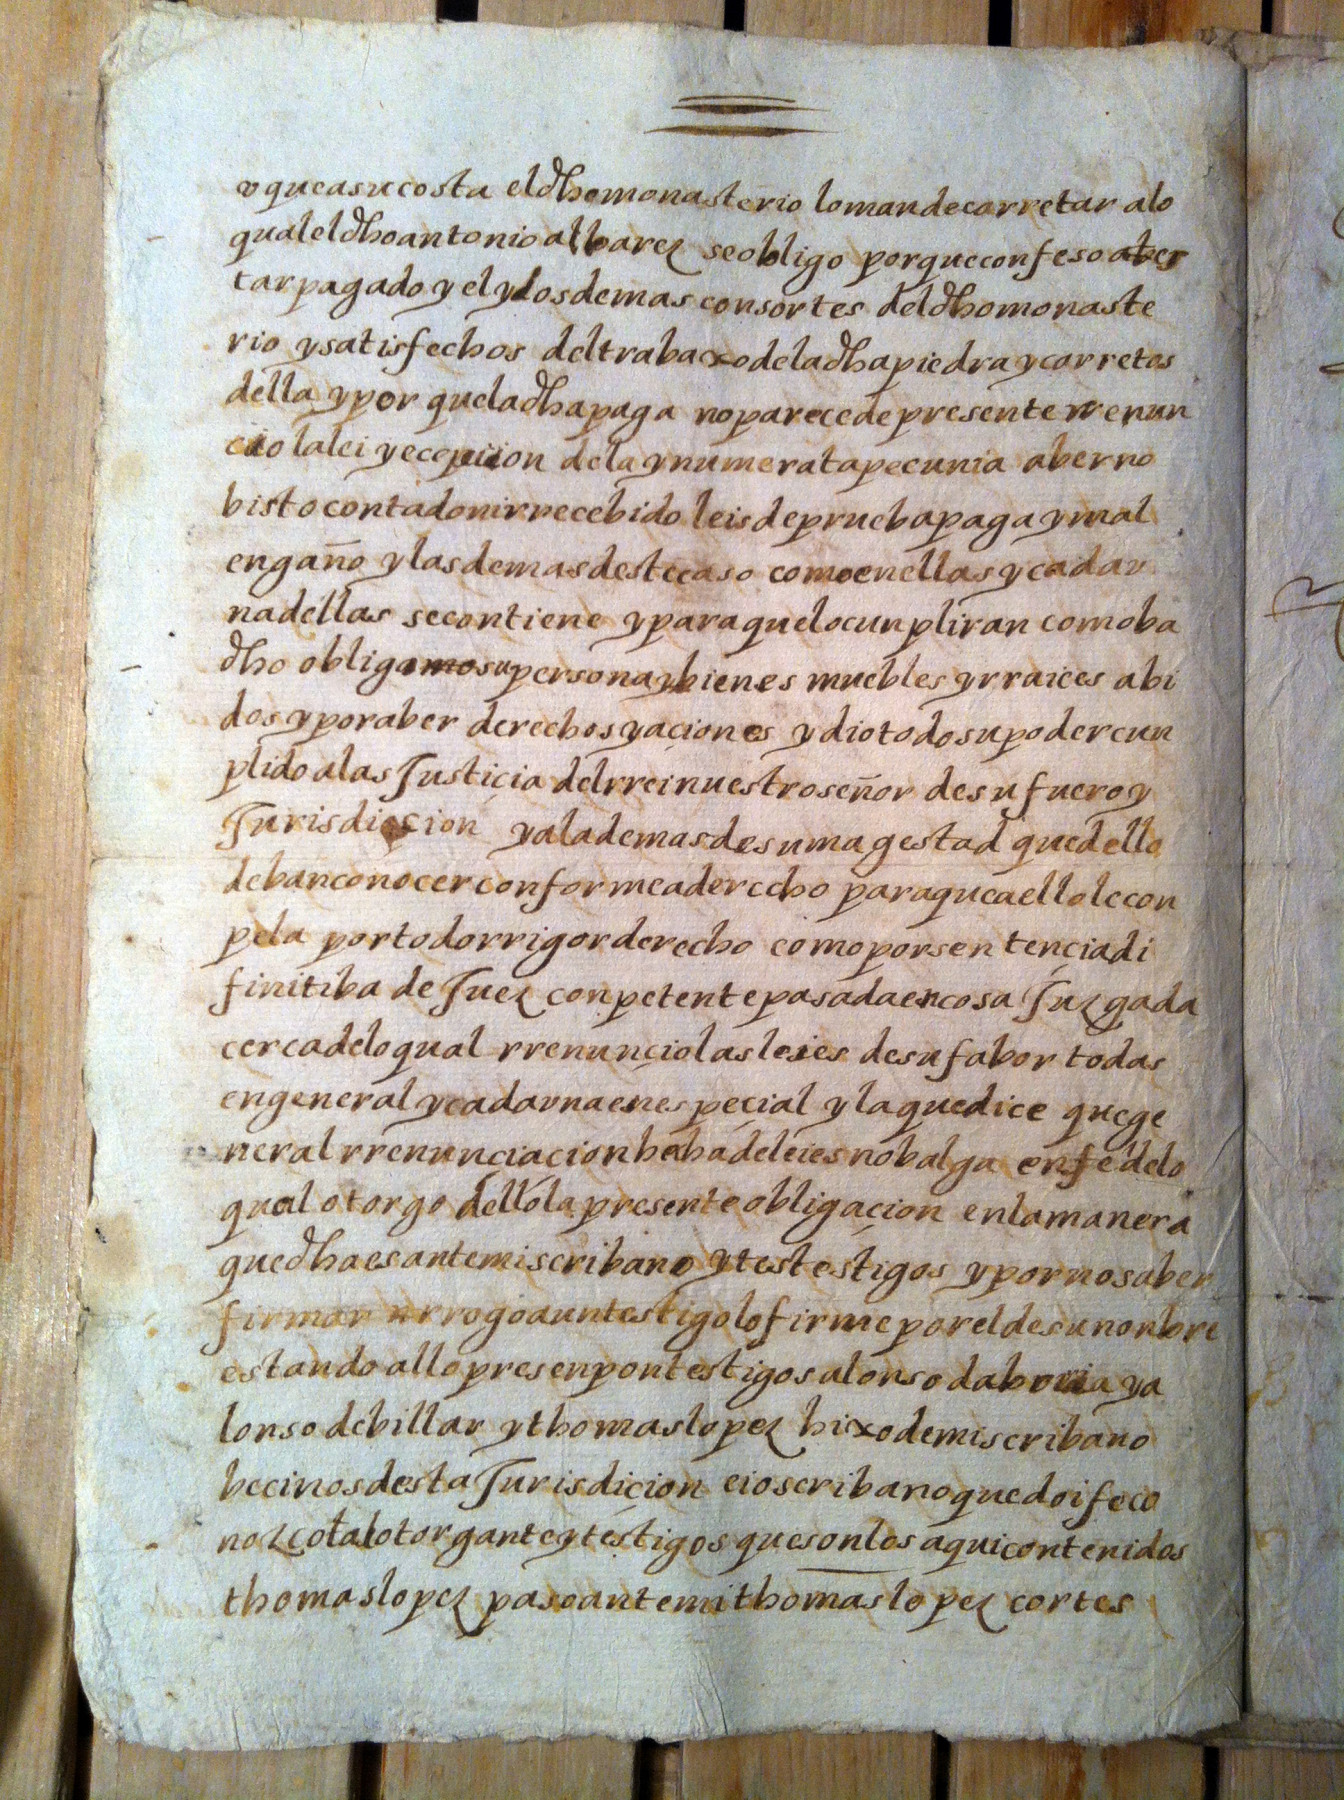 v que a su costa el dho monasterio lo mande carretar a lo
qual el dho antonio albarez se obligo porque confeso aber
tar pagado y el y los demas consortes del dho monaste
rio y satisfechos del trabaxo de la dha piedra y carretos
della y por que la dha paga no parece de presente rrenun
cio la lei y ecepcion de la ynumerata pecunia aber no
bisto contado ni rrecebido leis de prueba paga y mal
engaño y las demas deste caso como en ellas y cada v
na dellas se contiene y para que lo cunpliran como ba
dho obligo su persona y bienes muebles y rraices abi
dos y por aber derechos y aciones y dio todo su poder cun
plido a las Justicia del rrei nuestro señor de su fuero y
Jurisdicion y a la demas de su magestad que dello
deban conocer conforme a derecho para que a ello le con
pela por todo rrigor derecho como por sentençia di
finitiba de Juez conpetente pasada en cosa Juzgada
cerca de lo qual rrenunçio las leies de su fabor todas
en general y cada vna en espeçial y la que dice que ge
neral rrenunçiaçion hecha de leies no balga en fe de lo
qual otorgo dello la presente obligaçion en la manera
que dha es ante mi scribano y testestigos y por no saber
firmar rrogo a un testigo lo firme por el de su nonbre
estando a llo presen pon testigos alonso da boria y a
lonso de billar y thomas lopez hixo de mi scribano
becinos desta Jurisdiçion e io scribano que doi fe co
nozco tal otorgante y testigos que son los aqui contenidos
thomas lopez paso ante mi thomas lopez cortes